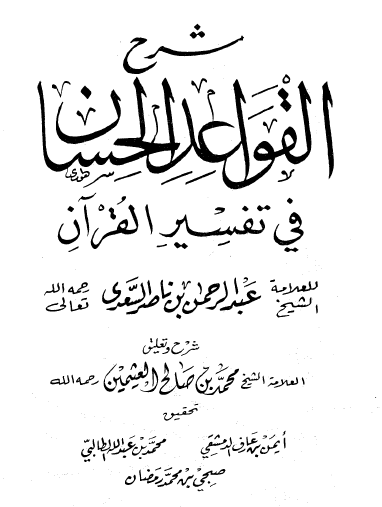 شرح
القواعد الحسان
في تفسير القرآن
للعلامة الشيخ عبد الرحمن بن ناصر السعدي رحمه الله تعالى
شرح وتعليق
العلامة الشيخ محمد بن صالح العثيمين رحمه الله
تحقيق
أيمن بن عارف الدمشقي محمد بن عبد الله الطالبي
صبحي بن محمد رمضان